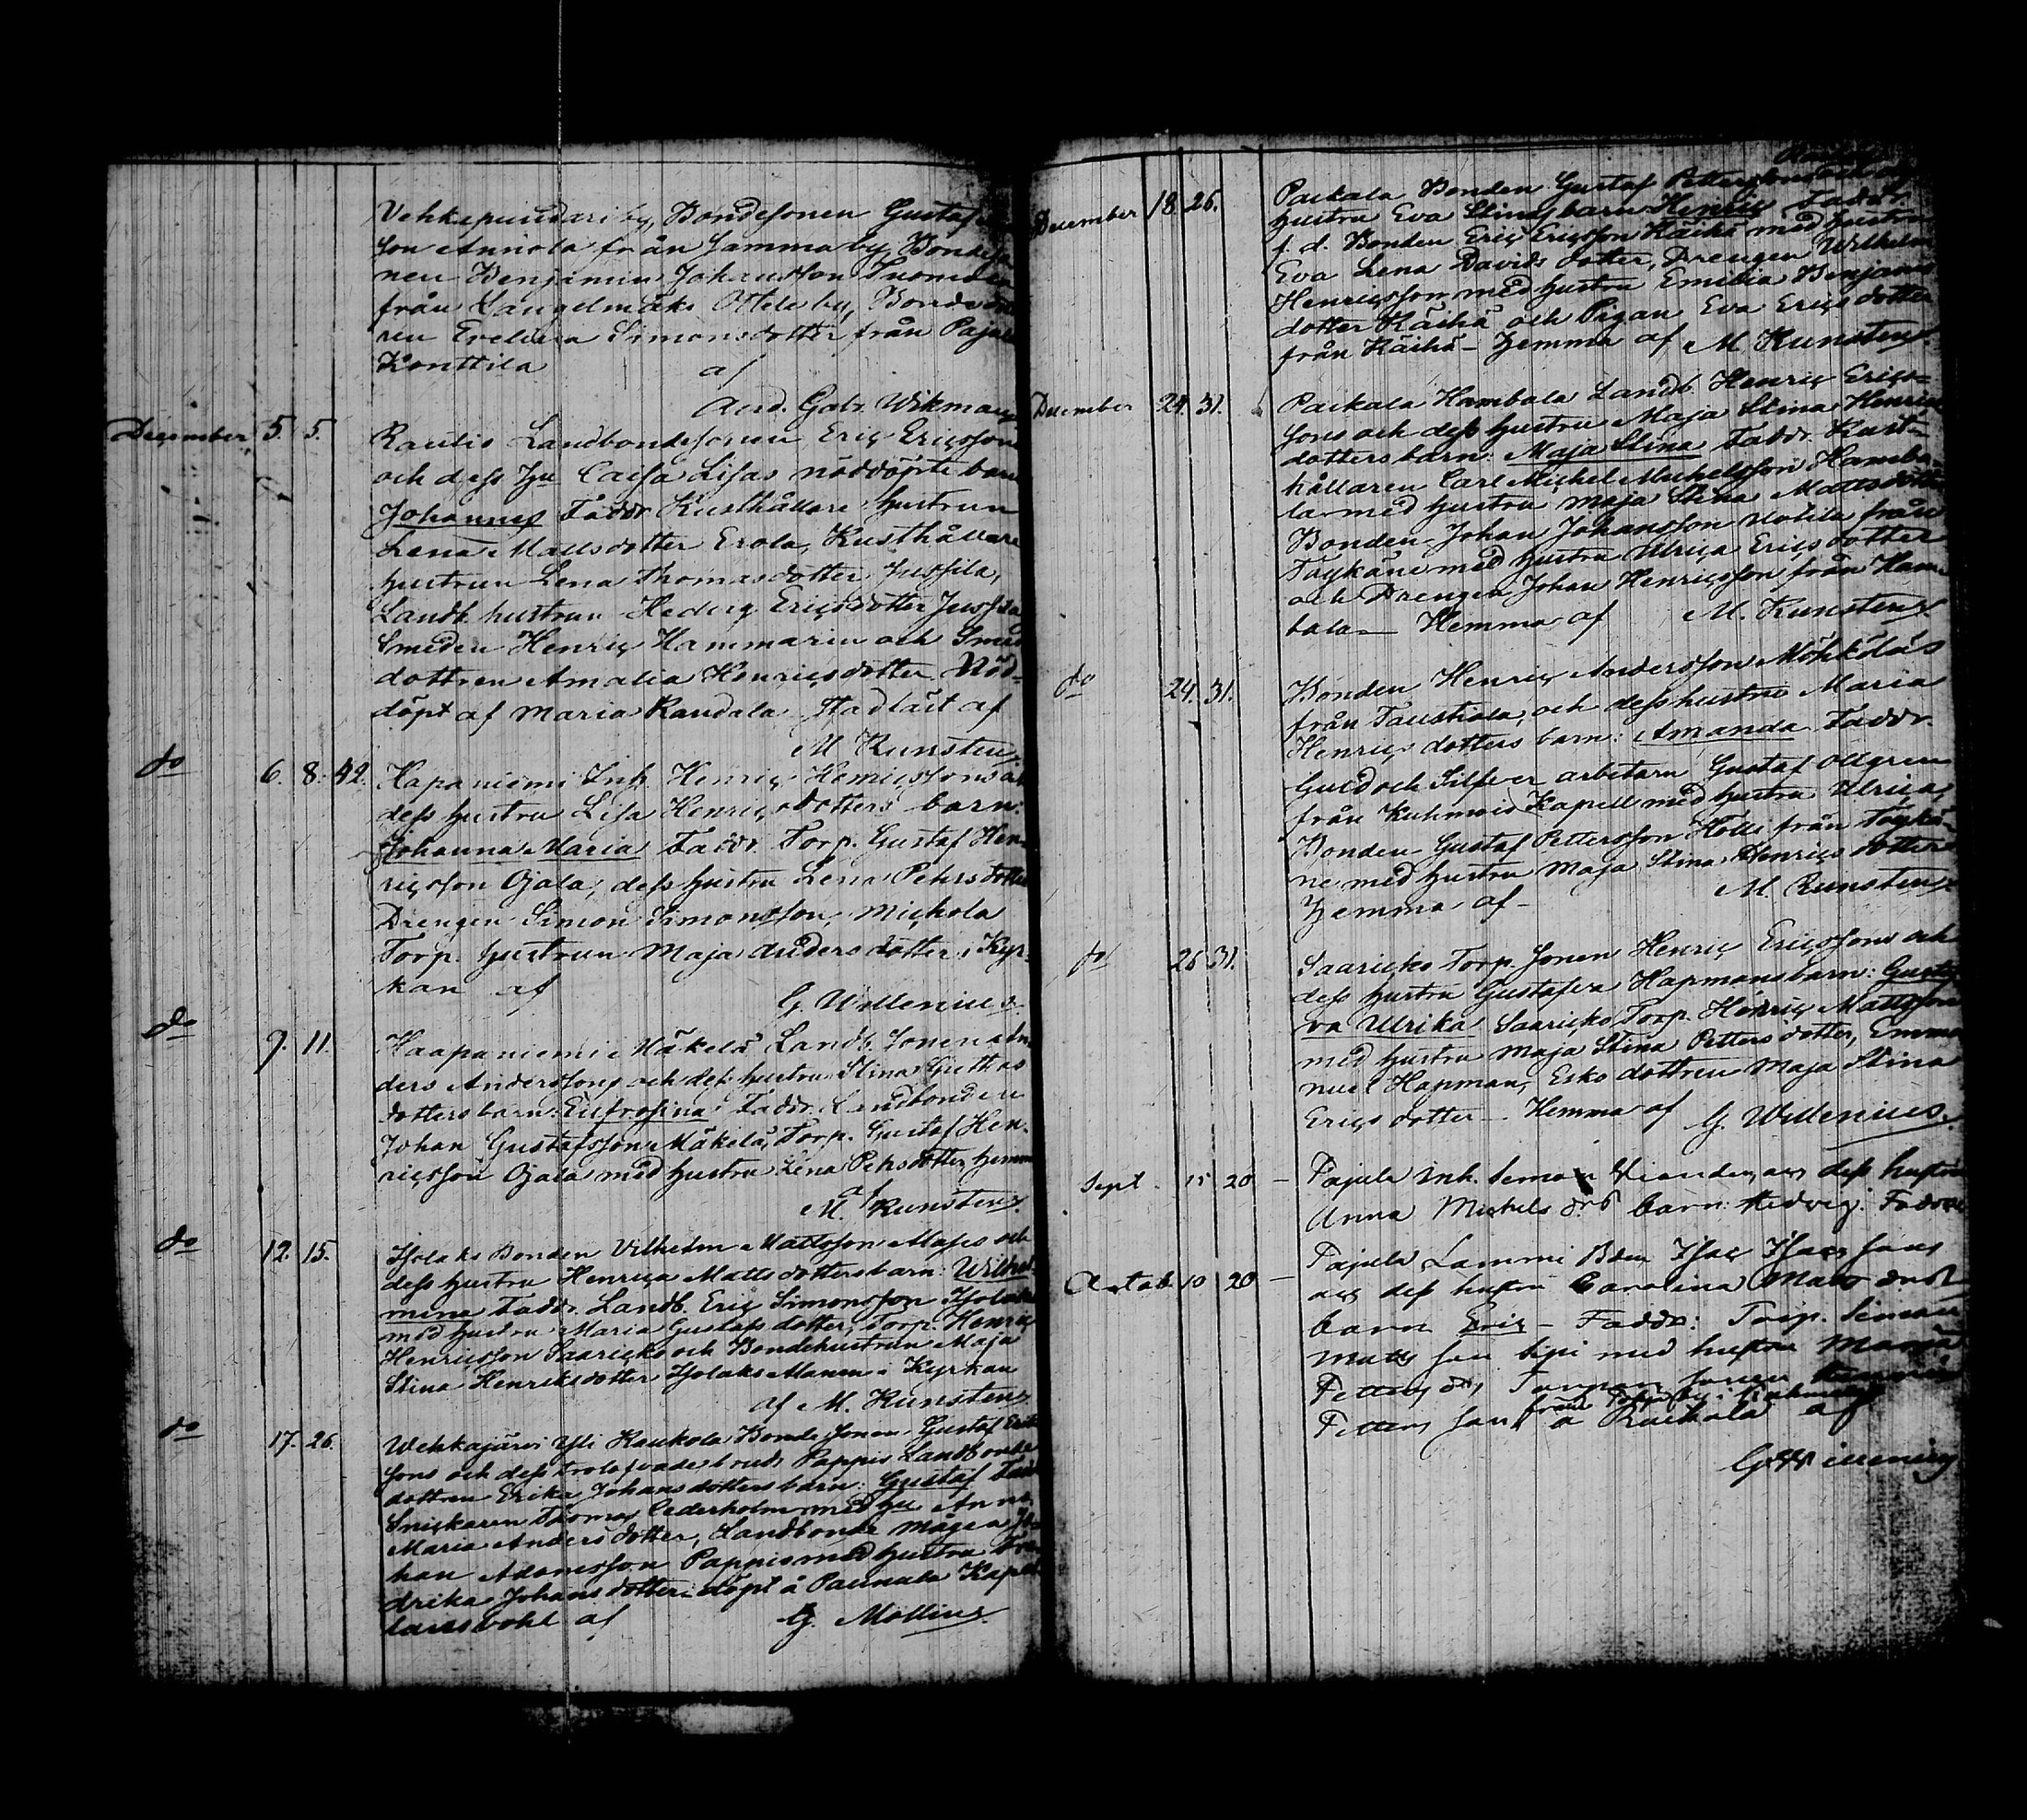 Vehkapuudari by, Bondesonen Gustaf
son Annola från samma by, Bondeso
nen Benjamin Johansson Tuomola
från Längelmäki Attila by, Bondedott
ren Evelina Simonsdotter från Pajula
Konttila af
And. Gabr. Wikman
December 5. 5. Rautis Landbondesonen Eric Ericssons
och dess Hu Caisa Lisas nöddöpte barn
Johannes Faddr. Rusthållare hustrun
Lena Mattsdotter Erola, Rusthållare
hustrun Lena Thomasdotter Jussila,
Landb. hustrun Hedvig Ericsdotter Jussila
Smeden Henric Hammarin och Smed
dottren Amalia Henricsdotter. Nöd=
döpt af Maria Randala Stadfäst af
M. Kunsten
do 6. 8. 42. Hapaniemi Inh. Henric Henricssons och
dess hustru Lisa Henricsdotters barn:
Johanna Maria Faddr. Torp. Gustaf Hen=
ricsson Ojala, dess hustru Lena Pehrsdotter
Drengen Simon Simonsson Mickola
Torp. hustrun Maja Andersdotter, i Kyr=
kan af
G. Willenius.
do 9. 11. Haapaniemi Mäkelä Landb. Sonen An
ders Anderssons och dess hustru Stina Gustafs
dotters barn: Eufrosina Faddr. Landbonden
Johan Gustafsson Mäkelä, Torp. Gustaf Hen=
ricsson Ojala med hustru Lena Pehrsdotter hemma
af
M. Kunsten.
do 12. 15. Isolaks Bonden Vilhelm Mattsson Mases och
dess hustru Henrica Mattsdotters barn: Wilhel
mina Faddr. Landb. Eric Simonsson Isolaks
med hustru Maria Gustafsdotter, Torp. Henric
Henricsson Saaricko och Bondehustrun Maja
Stina Henriksdotter Isolaks Manen i Kyrkan
af M. Kunsten
do 17. 26. Wehkajärvi Yli Kaukola Bonde Sonen Gustaf Erics
sons och dess trolofvade bruds Pappis Landbonde
dottren Erika Johansdotters barn: Gustaf Fadd
Snickaren Thomas Cederholm med hu Anna
Maria Andersdotter, Landbonde mågen Jo
han Adamsson Pappis med hustru Fre
drika Johansdotter döpt å Paunula Kapel
lansbohl af G. Mollin
December 18. 26. Paikala Bonden Gustaf Petterssons och dess
hustru Eva Stinas barn Henric Faddr.
f. d. Bonden Eric Ericsson Räihä med hustru
Eva Lena Davidsdotter, Drengen Wilhelm
Henricsson med hustru Emilia Benjamins
dotter Räihä och Pigan Eva Ericsdotter
från Räihä – Hemma af M. Kunsten
December 24. 31. Paikala Hambala Landb. Henric Erics=
sons och dess hustru Maja Stina Henrics
dotters barn: Maja Stina Faddr. Rust=
hållaren Carl Michel Michelsson Hamba=
la med hustru Maja Stina Mattsdotter
Bonden Johan Johansson Uotila från
Taykäne med hustru Ulrica Ericsdotter
och Drengen Johan Henricsson från Ham=
bala – Hemma af M. Kunsten
do 24. 31. Bonden Henric Andersson Mökkölä
från Taustiala, och dess hustru Maria
Henricsdotters barn: Amanda Faddr.
Guld och Silfver arbetarn Gustaf Allgren
från Kuhmois Kapell med hustru Ulrica,
Bonden Gustaf Pettersson Kölli från Taykä=
ne med hustru Maja Stina Henricsdotter
Hemma af – M. Kunsten
do 26 31. Saaricko Torp. Sonen Henric Ericssons och
dess hustru Gustafva Hapmans barn: Gusta
va Ulrika Saaricko Torp. Henric Mattsson
med hustru Maja Stina Pettersdotter, Emma
nuel Hapman, Esko dottren Maja Stina
Ericsdotter – Hemma af G. Willenius.
Sept. 15 20 – Pajula Inh. Simon och dess hustru
Anna Michels drs barn: Hedvig. Faddr
Octob. 10 20 – Pajula Lammi Bdn Isac Isacssons
och dess hustru Carolina Matts drs
barn Eric – Faddr: Torp. Simon
Matts son med hustru Maria
Petters dr,
Petters son å af
G. Willenius